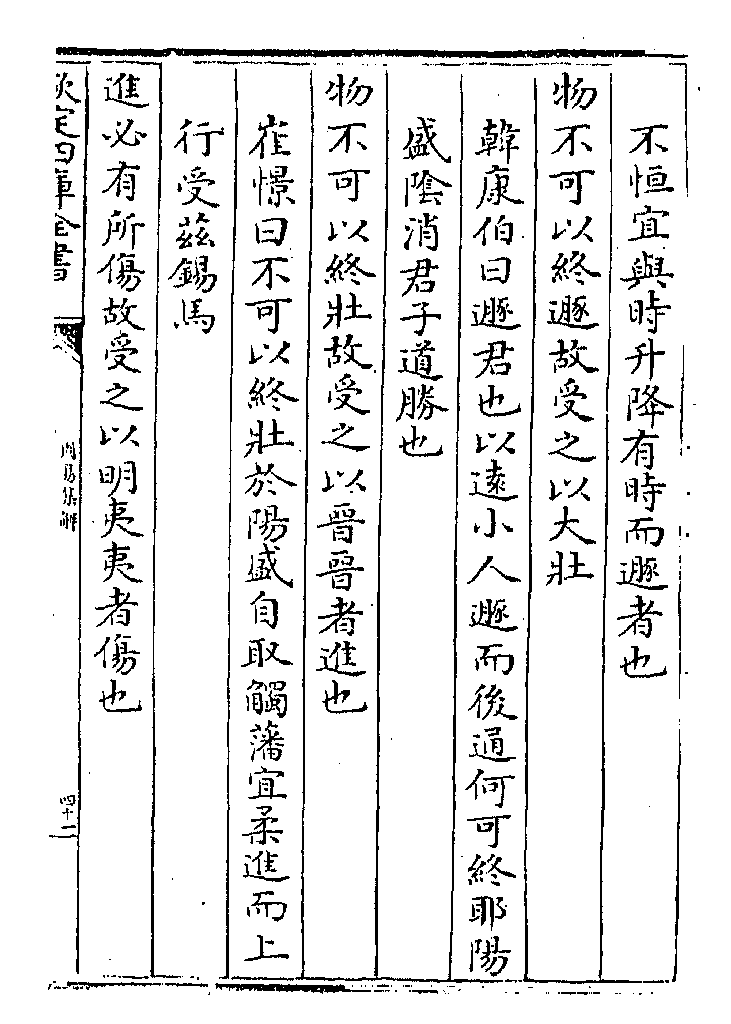 不恒宜與時升降有時而遯者也
物不可以終遯故受之以大壯
韓康伯曰遯君也以逺小人遯而後通何可終耶陽
盛陰消君子道勝也
物不可以終壯故受之以晉晉者進也
崔憬曰不可以終壯於陽盛自取觸藩宜柔進而上
行受兹錫馬
進必有所傷故受之以明夷夷者傷也
欽定四庫全書
周易集解
四十二